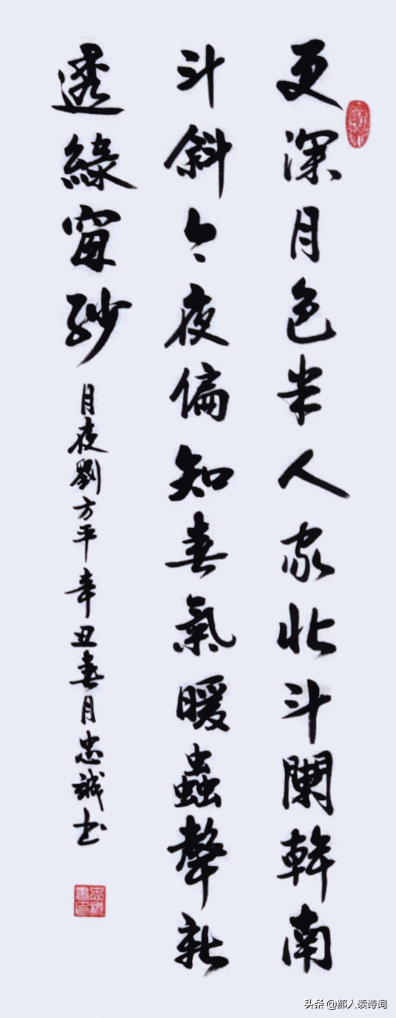 更深月色半人家北斗闌幹南
斗斜今夜偏知春氣暖蟲聲新
透綠窗紗
月夜劉方平辛丑春月忠誠书
头条